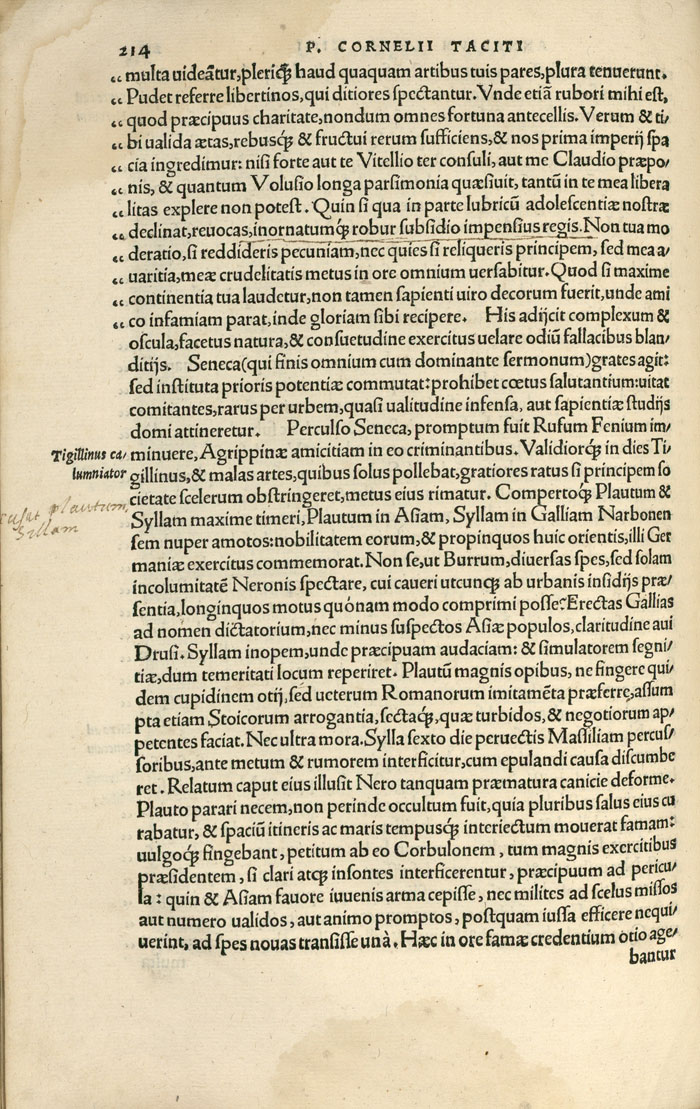 214 P. CORNELII TACITI
“ multa uideãtur,pleriqꝫ haud quaquam artibus tuis pares,plura tenuerunt.
“ Pudet referre libertinos,qui ditiores spectantur. Vnde etiã rubori mihi est,
“ quod præcipuus charitate,nondum omnes fortuna antecellis. Verum & ti/
“ bi ualida ætas,rebusqꝫ & fructui rerum sufficiens,& nos prima imperij spa
“ cia ingredimur: nisi forte aut te Vitellio ter consuli,aut me Claudio præpo/
“ nis, & quantum Volusio longa parsimonia quæsiuit, tantũ in te mea libera
“ litas explere non potest. Quin si qua in parte lubricũ adolescentiæ nostræ
“ declinat,reuocas,inornatumqꝫ robur subsidio impensius regis. Non tua mo
“ deratio,si reddideris pecuniam,nec quies si reliqueris principem, sed mea a/
“ uaritia,meæ crudelitatis metus in ore omnium uersabitur. Quod si maxime
“ continentia tua laudetur,non tamen sapienti uiro decorum fuerit,unde ami
“ co infamiam parat,inde gloriam sibi recipere. His adijcit complexum &
oscula,facetus natura,& consuetudine exercitus uelare odiũ fallacibus blan/
ditijs. Seneca(qui finis omnium cum dominante sermonum)grates agit:
sed instituta prioris potentiæ commutat:prohibet cœtus salutantium:uitat
comitantes,rarus per urbem,quasi ualitudine infensa, aut sapientiæ studijs
domi attineretur. Perculso Seneca, promptum fuit Rufum Fenium im/
Tigillinus ca/
lumniator
minuere, Agrippinæ amicitiam in eo criminantibus. Validiorqꝫ in dies Ti/
gillinus,& malas artes,quibus solus pollebat,gratiores ratus si principem so
cietate scelerum obstringeret,metus eius rimatur. Compertoqꝫ Plautum &
plautum
Sillam
Syllam maxime timeri,Plautum in Asiam, Syllam in Galliam Narbonen
sem nuper amotos:nobilitatem eorum,& propinquos huic orientis,illi Ger
maniæ exercitus commemorat. Non se,ut Burrum,diuersas spes,sed solam
incolumitatẽ Neronis spectare, cui caueri utcunqꝫ ab urbanis insidijs præ/
sentia,longinquos motus quónam modo comprimi posse? Erectas Gallias
ad nomen dictatorium,nec minus suspectos Asiæ populos,claritudine aui
Drusi. Syllam inopem,unde præcipuam audaciam: & simulatorem segni/
tiæ,dum temeritati locum reperiret. Plautũ magnis opibus, ne fingere qui/
dem cupidinem otij,sed ueterum Romanorum imitamẽta præferre,assum
pta etiam Stoicorum arrogantia,sectaqꝫ,quæ turbidos,& negotiorum ap/
petentes faciat. Nec ultra mora.Sylla sexto die peruectis Massiliam percus/
soribus,ante metum & rumorem interficitur,cum epulandi causa discumbe
ret. Relatum caput eius illusit Nero tanquam præmatura canicie deforme.
Plauto parari necem,non perinde occultum fuit,quia pluribus salus eius cu
rabatur, & spaciũ itineris ac maris tempusqꝫ interiectum mouerat famam:
uulgoqꝫ fingebant, petitum ab eo Corbulonem, tum magnis exercitibus
præsidentem, si clari atqꝫ insontes interficerentur, præcipuum ad pericu/
la: quin & Asiam fauore iuuenis arma cepisse, nec milites ad scelus missos
aut numero ualidos, aut animo promptos, postquam iussa efficere nequi/
uerint, ad spes nouas transisse unà. Hæc in ore famæ credentium otio age/
bantur